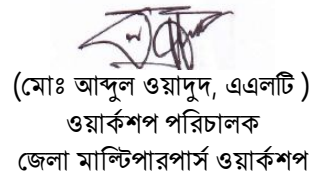 (মোঃ আব্দুল ওয়াদুদ, এএলটি )
ওয়ার্কশপ পরিচালক
জেলা মাল্টিপারপার্স ওয়ার্কশপ